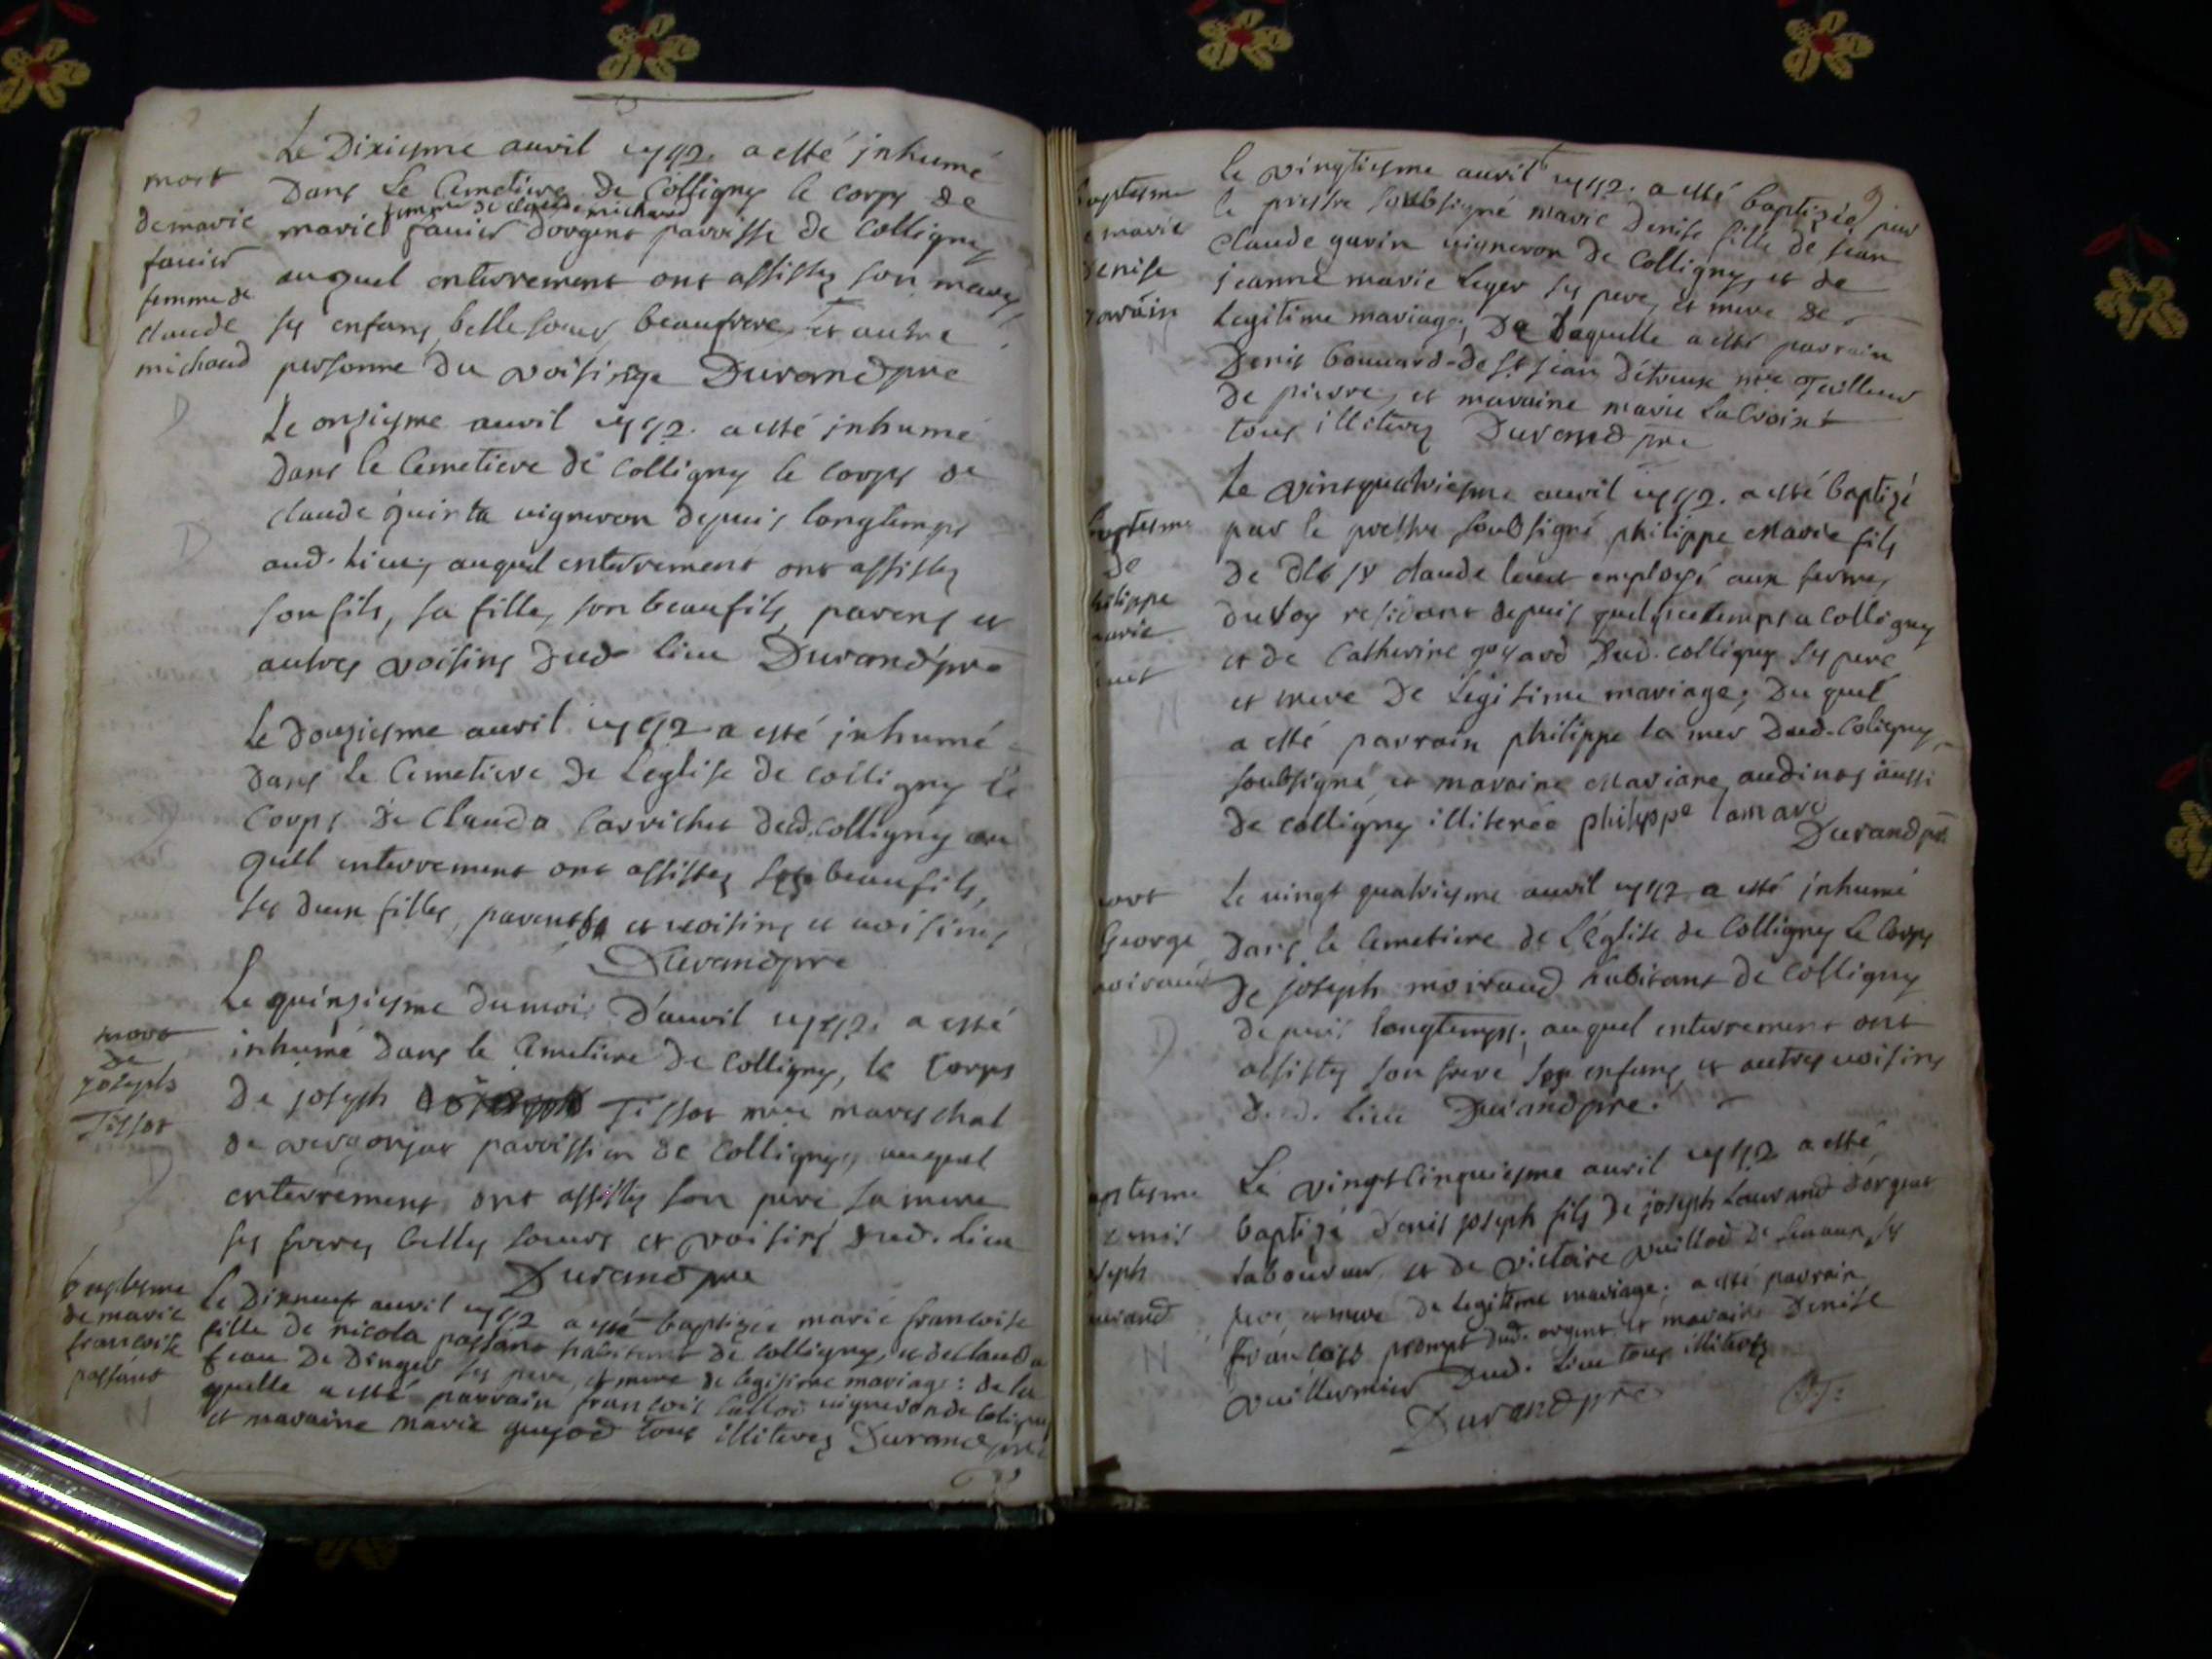 mort
de marie
fanier
femme de
claude
michaud
Le Dixiesme auvril a esté jnhumé
Dans Le Cemetiere de Colligny le corps de
femme de claude michaud
marie fanier dorgent parroisse de Colligny
auquel enterrement ont assistez son
ses enfans, belle soeur, beaufrere, et autre
personne du voisinge Durand pre
Le onziesme auvril a esté jnhumé
Dans le Cemetiere de Colligny le corps de
claude quinta vigneron depuis longtemps
aud. lieu, auquel enterrement ont assistez
son fils, sa fille, son beaufils, parens et
autres voisins dud lieu Durand pre
Le douziesme auvril a esté jnhumé
Dans Le Cemetiere de Leglise de Colligny le
Corps de Clauda Carrichet dud. Colligny au
quel enterrement ont assistez beaufils,
ses deux filles, parents et voisins et voisines
Durand pre
mort
de
joseph
Tissot
Le quinziesme du mois D'auvril a esté
inhumé dans le Cemetiere de Colligny, le Corps
De joseph Tissot marechal
de parroissien de Colligny, auquel
enterrement ont assistez son pere sa mere
ses freres belles soeurs et voisins dud. Lieu
Durand pre
baptesme
de marie
francoise
passant
Le Dixneuf auvril a esté baptizée marie francoise
fille de nicola passant habitant de Colligny, et de clauda
jean De Dinger ses pere, et mere de legitime mariage: de la
quelle a esté parrain francois vigneron de Coligny
et maraine marie guyod tous illiterez Durand pre
baptesme
marie
denise
Le vingtiesme auvril a esté baptizée par
le prestre soubsigné marie denise fille de jean
claude gavin vigneron de Colligny, et de
jeanne marie Leger ses pere, et mere de
Legitime mariage, De Laquelle a esté parrain
Denis bouuard de st jean d'étreux Tailleur
de pierre, et maraine marie LaCroix
tous illiterez Durand pre
baptesme
de
philippe
marie
Le vintquatriesme auvril a esté baptizé
par le prestre soubsigné philippe Marie fils
de claude employé aux fermes
du Roy residant depuis quelque temps a Colligny
et de Catherine goyard dud. Colligny ses pere
et mere de Legitime mariage, Du quel
a esté parrain philippe la mer dud. Coligny,
soubsigné, et maraine Mariane audinos aussi
de Colligny illiterée philippe lamare
Durand pre
mort
George
moiraud
Le vingt quatriesme auvril a esté jnhumé
Dans le Cemetiere de L'église de Colligny Le Corps
De joseph moiraud habitant de Colligny
depuis longtemps, auquel enterrement ont
assistez son frere enfans et autres voisins
dud. lieu Durand pre.
baptesme
denis
joseph
Laurand
Le vingtcinquiesme auvril a esté
baptizé denis joseph fils de joseph Laurand d'orgent
Laboureur, et de victoire vuillod ses
pere et mere de legitime mariage: a esté parrain
François prompt dud. orgent et maraine Denise
vuillermier dud. Lieu tous illiterez
Durand pre